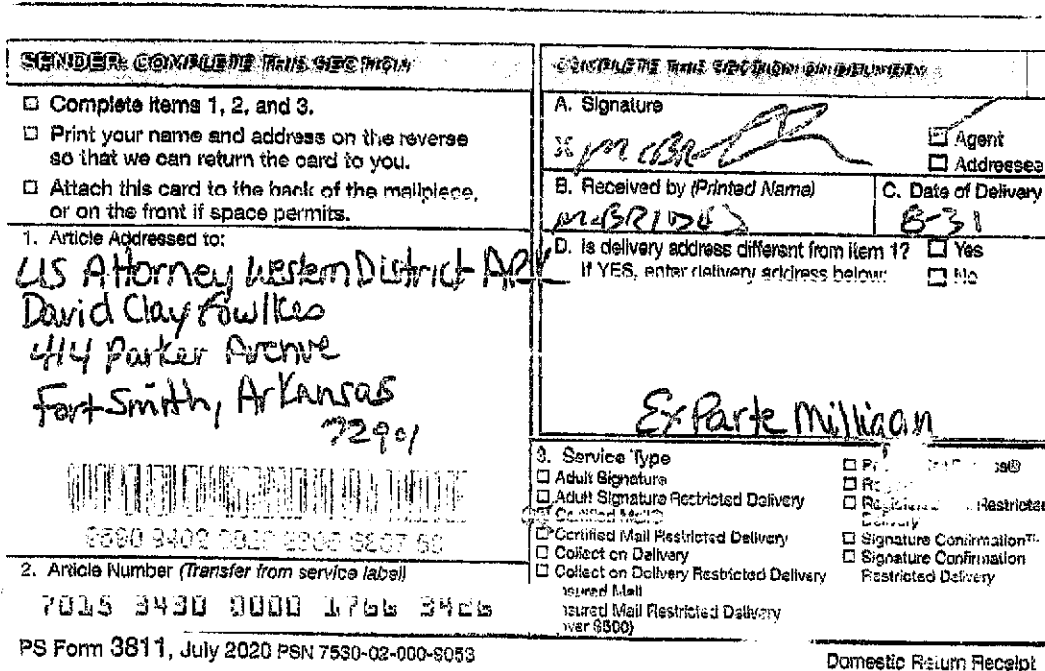 SENDER: COMPLETE THIS SECTION
□ Complete items 1, 2, and 3.
□ Print your name and address on the reverse
so that we can return the card to you.
□ Attach this card to the back of the mailpiece,
or on the front if space permits.
1. Article Addressed to:
US Attorney Western District ARK
David Clay Fowlkes
414 Parker Avenue
Fort Smith, Arkansas
72901
2. Article Number (Transfer from service label)
7015 3430 0000 1766
PS Form 3811, July 2020 PSN 7530-02-000-9053
COMPLETE THIS SECTION ON DELIVERY
A. Signature
X
□ Agent
□ Addressee
B. Received by (Printed Name)
C. Date of Delivery
8-31
D. Is delivery address different from item 1? □ Yes
If YES, enter delivery address below: □ No
Ex Parte Milligan
3. Service Type
□ Adult Signature
□ Adult Signature Restricted Delivery
Certified Mail®
□ Certified Mail Restricted Delivery
□ Collect on Delivery
□ Collect on Delivery Restricted Delivery
nsured Mail
nsured Mail Restricted Delivery
ver $500)
Restricted
Delivery
□ Signature Confirmation™
□ Signature Confirmation
Restricted Delivery
Domestic Return Receipt